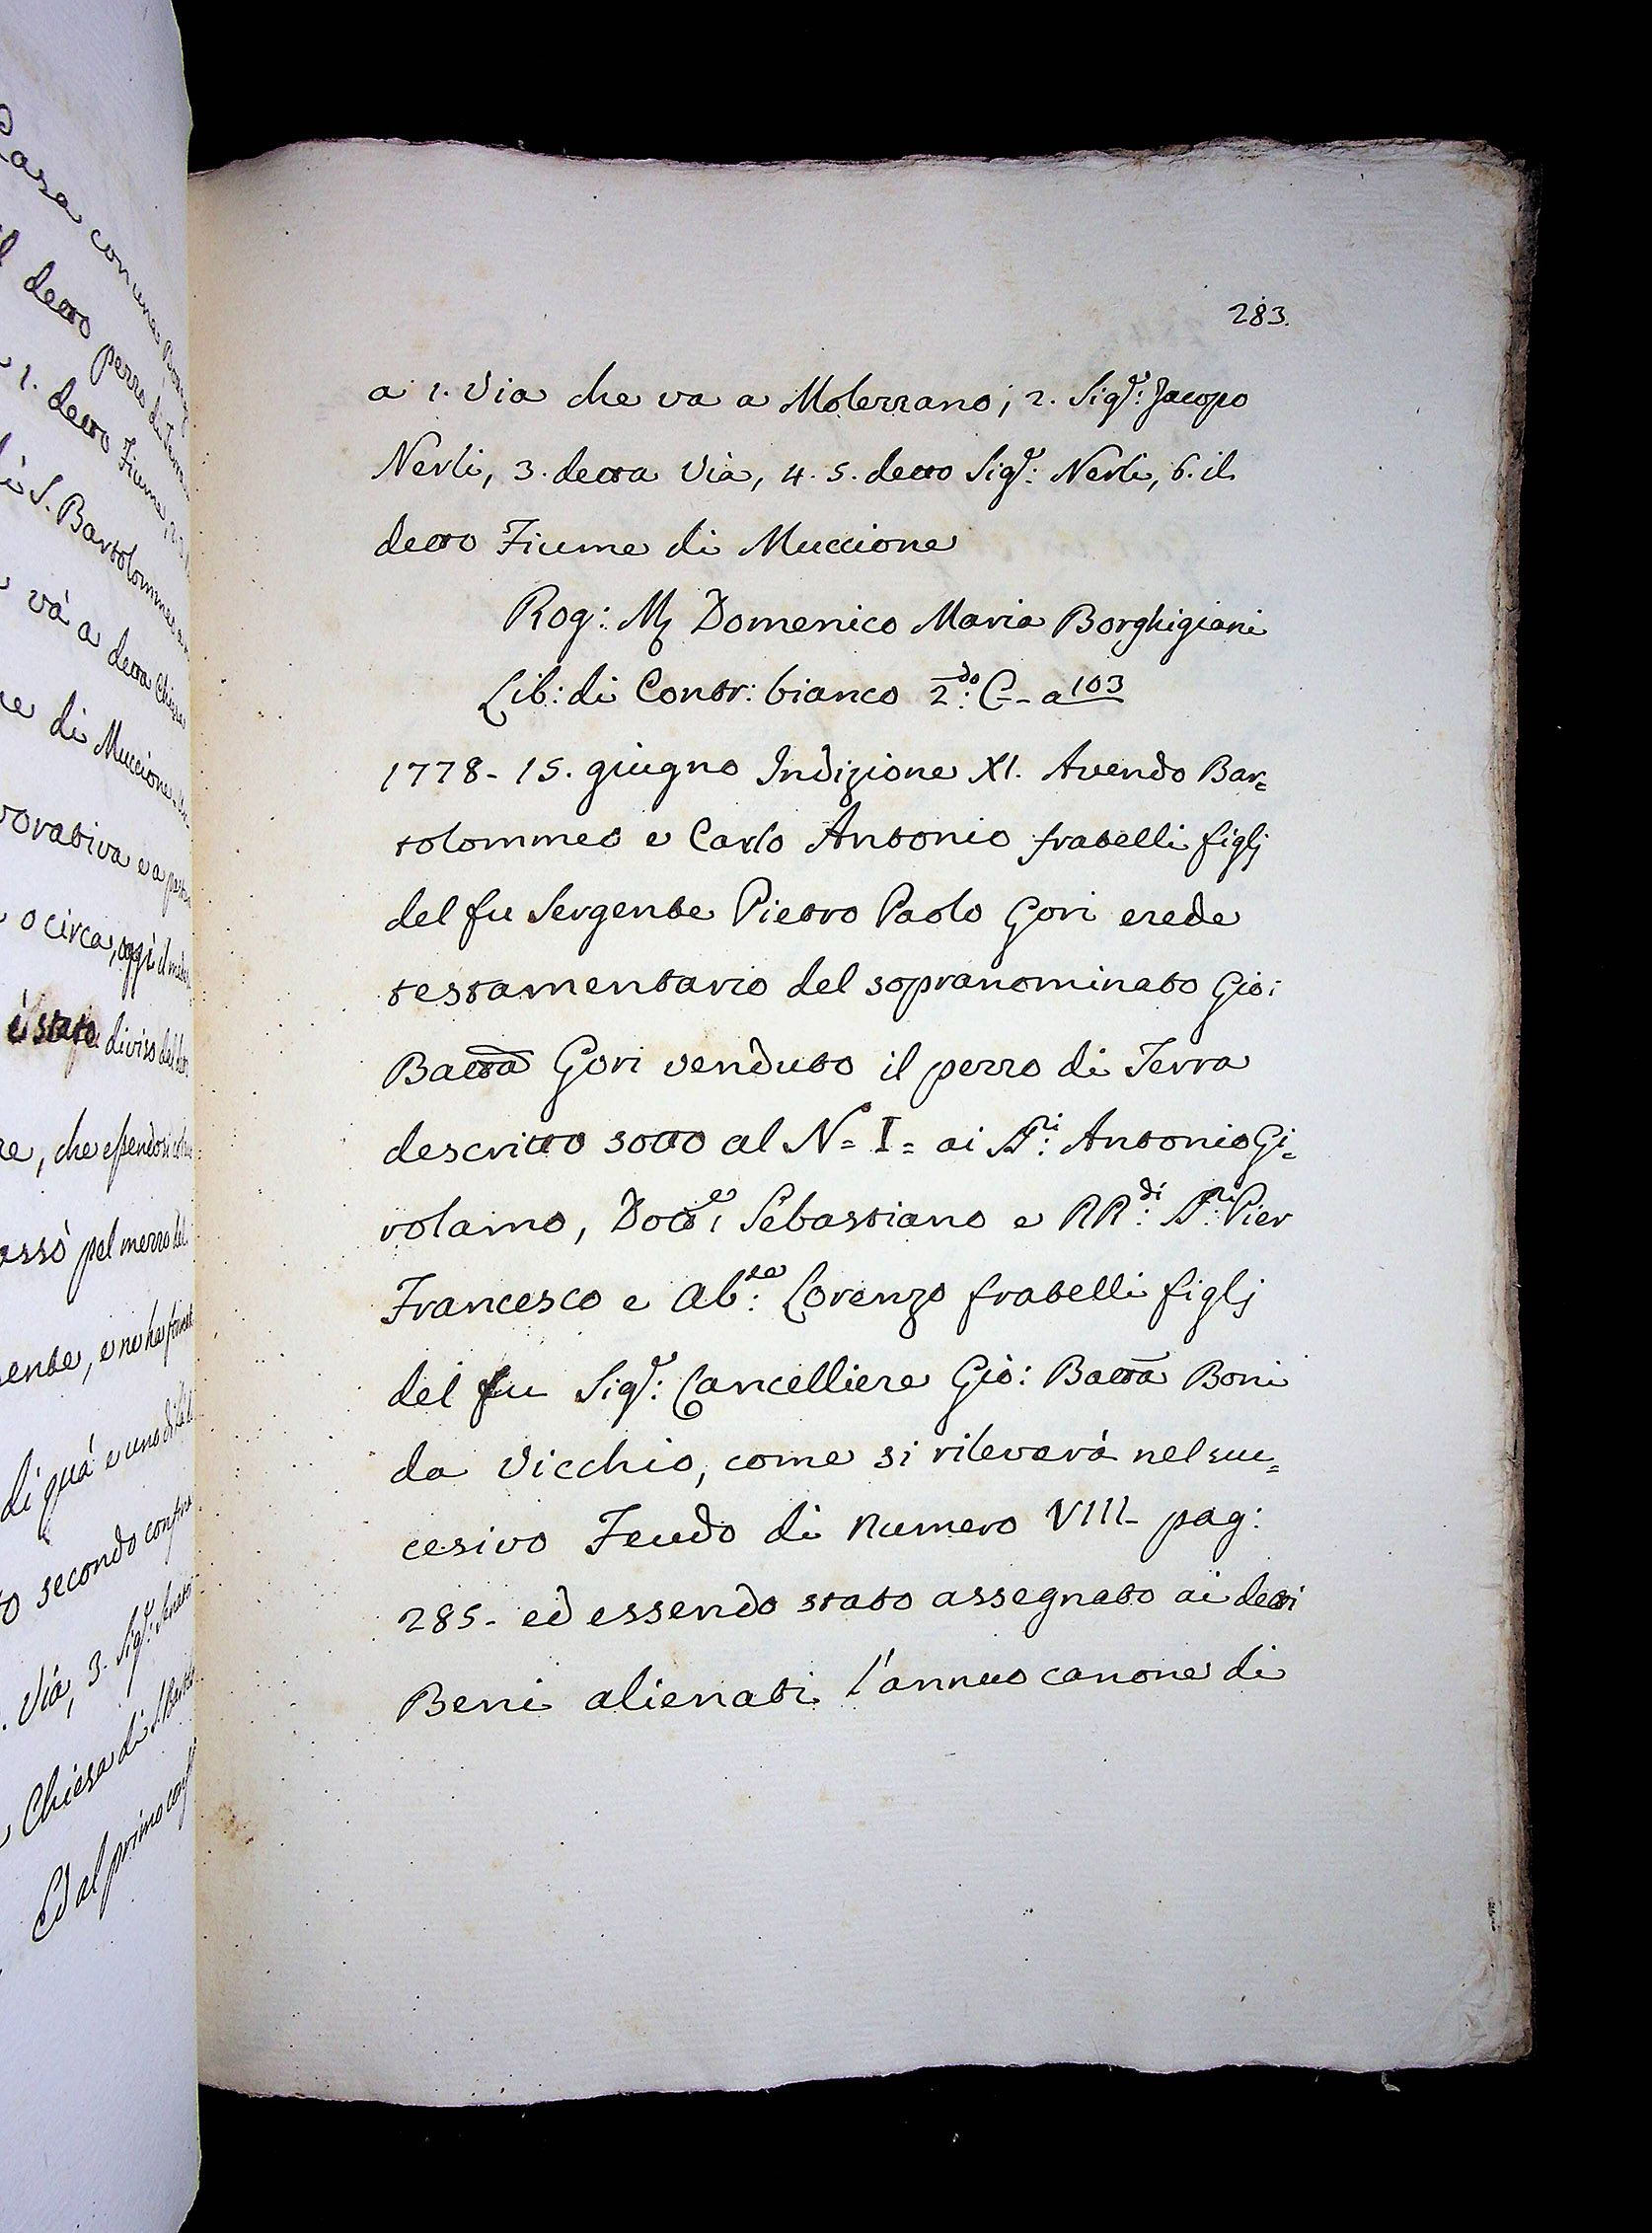 283.
a 1. Via che va a Molezzano; 2. Sigr: Jacopo
Nerli, 3. detta Via, 4. 5. detto Sigr: Nerli, 6. il
detto Fiume di Muccione
Rog: Mr Domenico Maria Borghigiani
Lib: di Contr: bianco 2do: C- a 103
1778- 15. giugno Indizione XI. Avendo Bar=
tolommeo e Carlo Antonio fratelli figlj
del fu Sergente Pietro Paolo Gori erede
testamentario del sopranominato Gio:
Batta Gori venduto il pezzo di Terra
descritto sotto al N= I= ai SSri: Antonio Gi=
rolamo, Dotte: Sebastiano e RRdi: SSri: Pier
Francesco e Abte: Lorenzo fratelli figlj
del fu Sigr: Cancelliere Gio: Batta Boni
da Vicchio, come si rileverà nel suc=
cesivo Feudo di Numero VIII- pag:
285- ed essendo stato assegnato ai detti
Beni alienati l'annuo canone di
Casa con una
l detto pezzo di Terra
1. detto Fiume, 2.
di S. Bartolommeo
và a detta Chiesa
di Muccione
vorativa e a
o circa, oggi il
è stato diviso dal
re, che essendosi
assò pel mezzo del
sente, e ne ha
di quà e uno di là
secondo
Via, 3. Sigr:
Chiesa di S.
Ed al primo